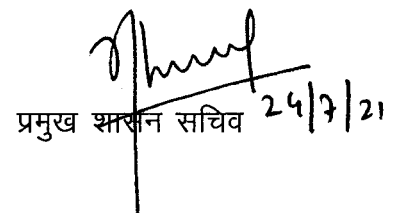 प्रमुख शासन सचिव 24/7/21